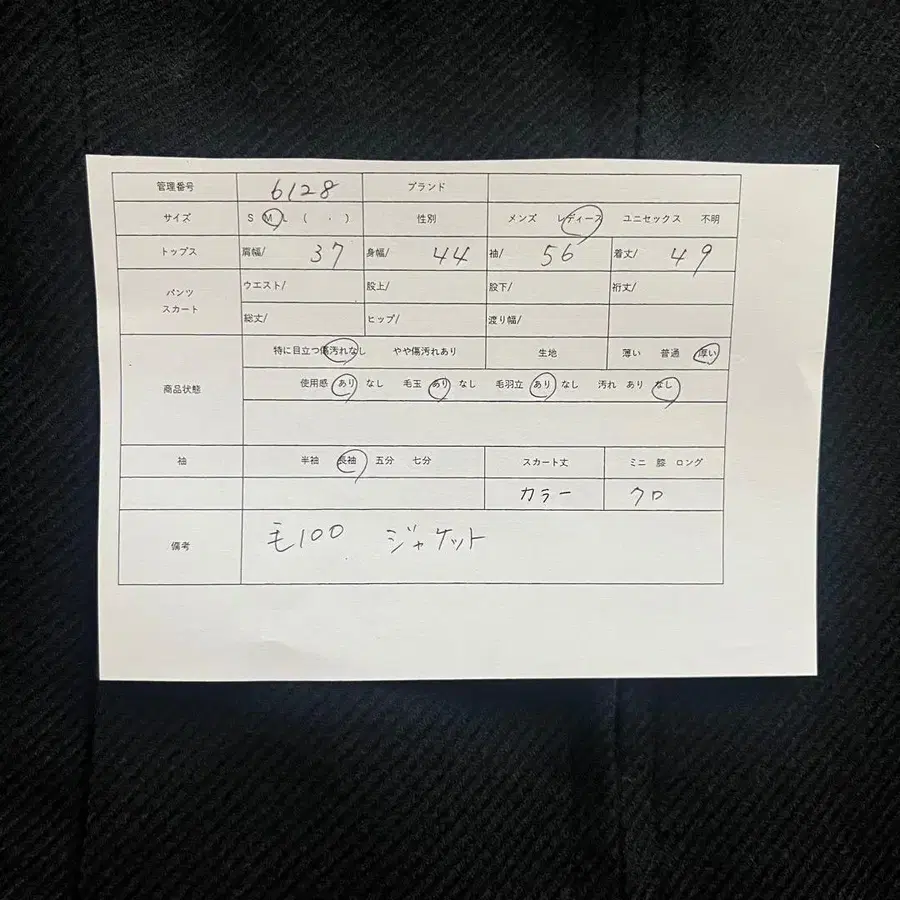 管理番号 6128 ブランド
サイズ S M L ( ・ ) 性別 メンズ レディース ユニセックス 不明
トップス 肩幅/ 37 身幅/ 44 袖/ 56 着丈/ 49
パンツ スカート ウエスト/ 股上/ 股下/ 裄丈/
総丈/ ヒップ/ 渡り幅/
商品状態 特に目立つ傷汚れなし やや傷汚れあり 生地 薄い 普通 厚い
使用感 あり なし 毛玉 あり なし 毛羽立 あり なし 汚れ あり なし
袖 半袖 長袖 五分 七分 スカート丈 ミニ 膝 ロング
カラー クロ
備考 毛100 ジャケット